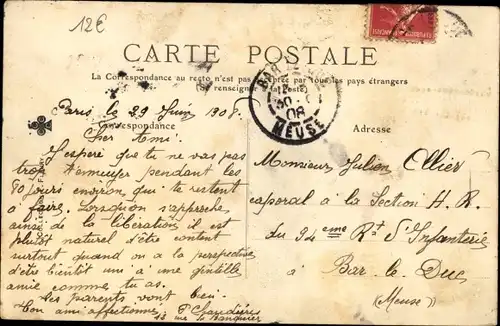 12€
CARTE POSTALE
La Correspondance au recto n'est pas acceptée par tous les pays étrangers
(Se renseigner à la Poste)
BAR
08
MEUSE
Paris le 29 Juin 1908.
Correspondance
Adresse
Cher Ami.
J'espère que tu ne vas pas
trop t'ennuyer pendant les
80 jours environ, qui te restent
à faire. Lorsqu'on s'approche
ainsi de la libération il est
plutôt naturel d'être content
surtout quand on a la perspective
d'être bientôt uni à une gentille
amie comme tu as.
Tes parents vont bien.
Ton ami affectionné
Monsieur Julien Ollier
caporal à la Section H. R.
du 94eme Rt d'Infanterie
à Bar-le-Duc
(Meuse)